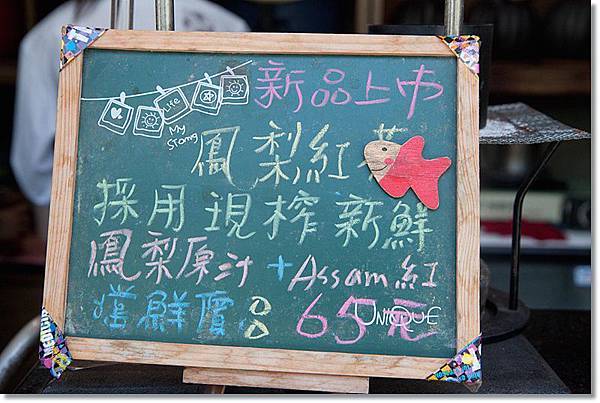 新品上市
Life
My
Story
鳳梨紅茶
採用現榨新鮮
鳳梨原汁+Assam紅
嘗鮮價:65元
UNIQUE